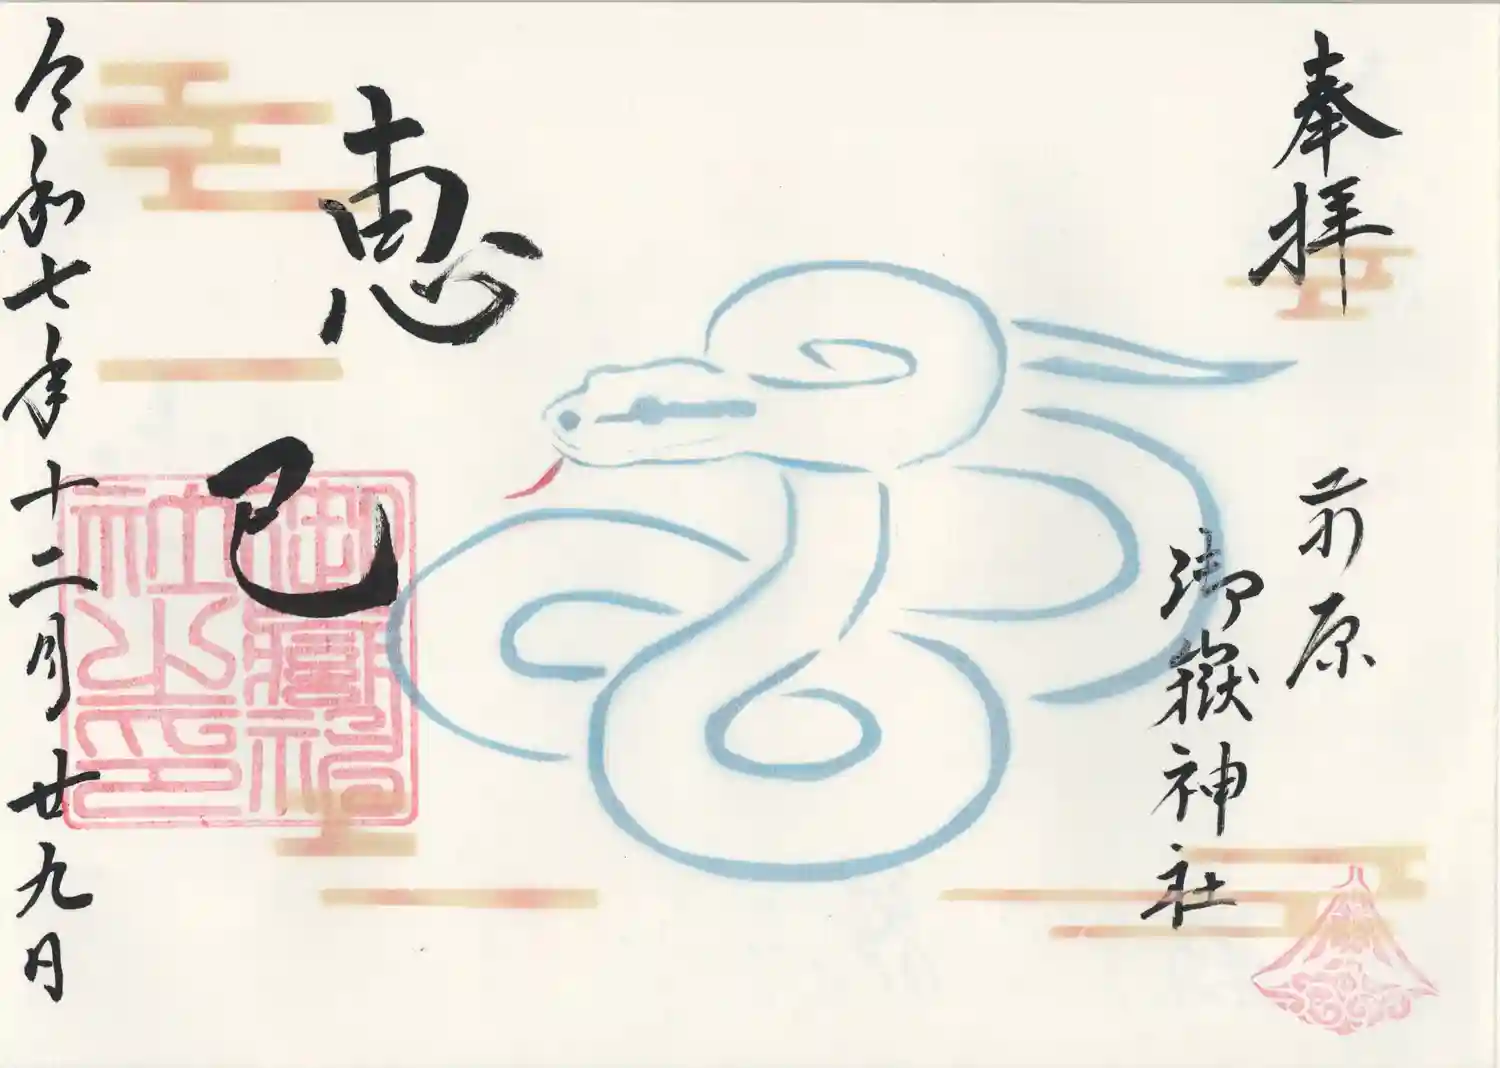 奉拝
前原
御嶽神社
恵巳
令和七年十二月廿九日
御嶽神社之印